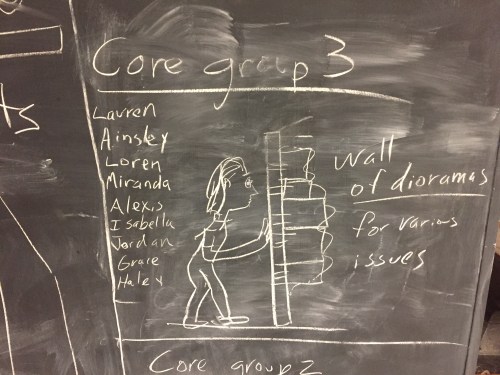 Core group 3
Lauren
Ainsley
Loren
Miranda
Alexis
Isabella
Jordan
Grace
Haley
Wall
of dioramas
for various
issues
ts
Core group 2